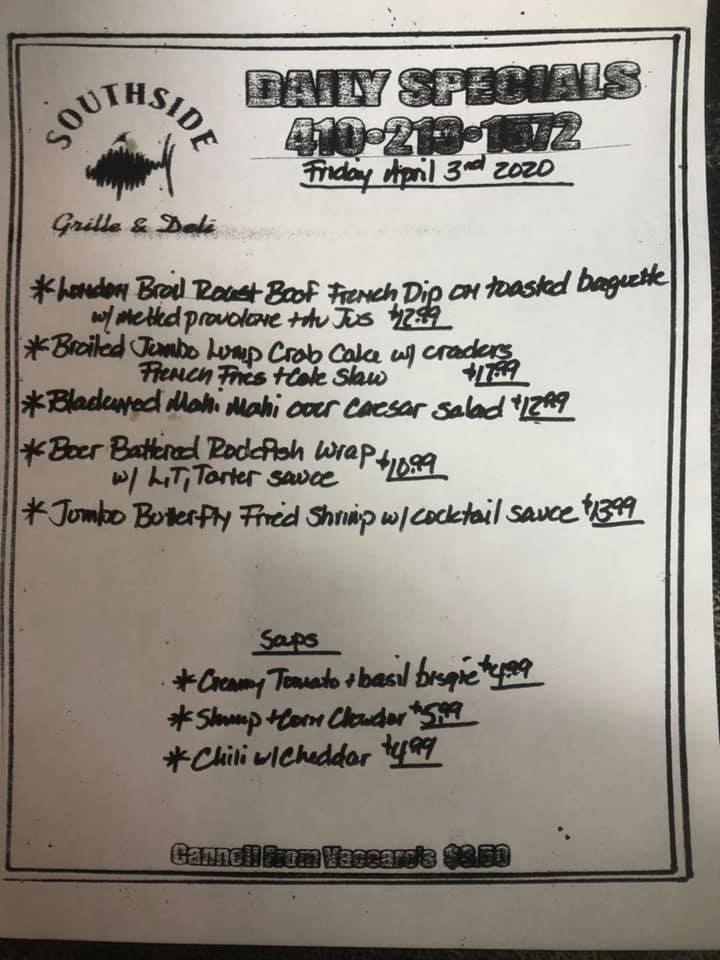 SOUTHSIDE
Grille & Deli
DAILY SPECIALS
410•213•1572
Friday April 3rd 2020
* London Broil Roast Beef French Dip on toasted baguette
w/ melted provolone + Au Jus $12.99
* Broiled Jumbo Lump Crab Cake w/ crackers
French Fries + Cole Slaw $17.99
* Blackened Mahi Mahi over Caesar salad $12.99
* Beer Battered Rockfish Wrap $10.99
w/ L,T, Tarter sauce
* Jumbo Butterfly Fried Shrimp w/ cocktail sauce $13.99
Soups
* Creamy Tomato + basil bisque $4.99
* Shrimp + Corn Chowder $5.99
* Chili w/ Cheddar $4.99
Cannoli From Vaccaro's $3.50